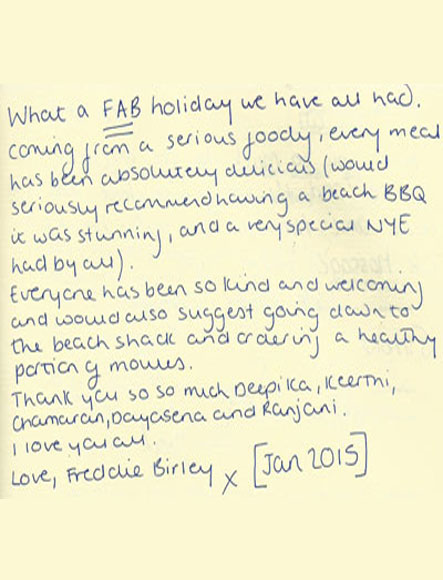 What a FAB holiday we have all had.
coming from a serious foody, every meal
has been absolutely delicious (would
seriously recommend having a beach BBQ
it was stunning, and a very special NYE
had by all).
Everyone has been so kind and welcoming
and would also suggest going down to
the beach shack and ordering a healthy
portion of moules.
Thank you so so much Deepika, Keerthi,
Chamaran, Dayasena and Ranjani.
I love you all.
Love, Freddie Birley x [Jan 2015]